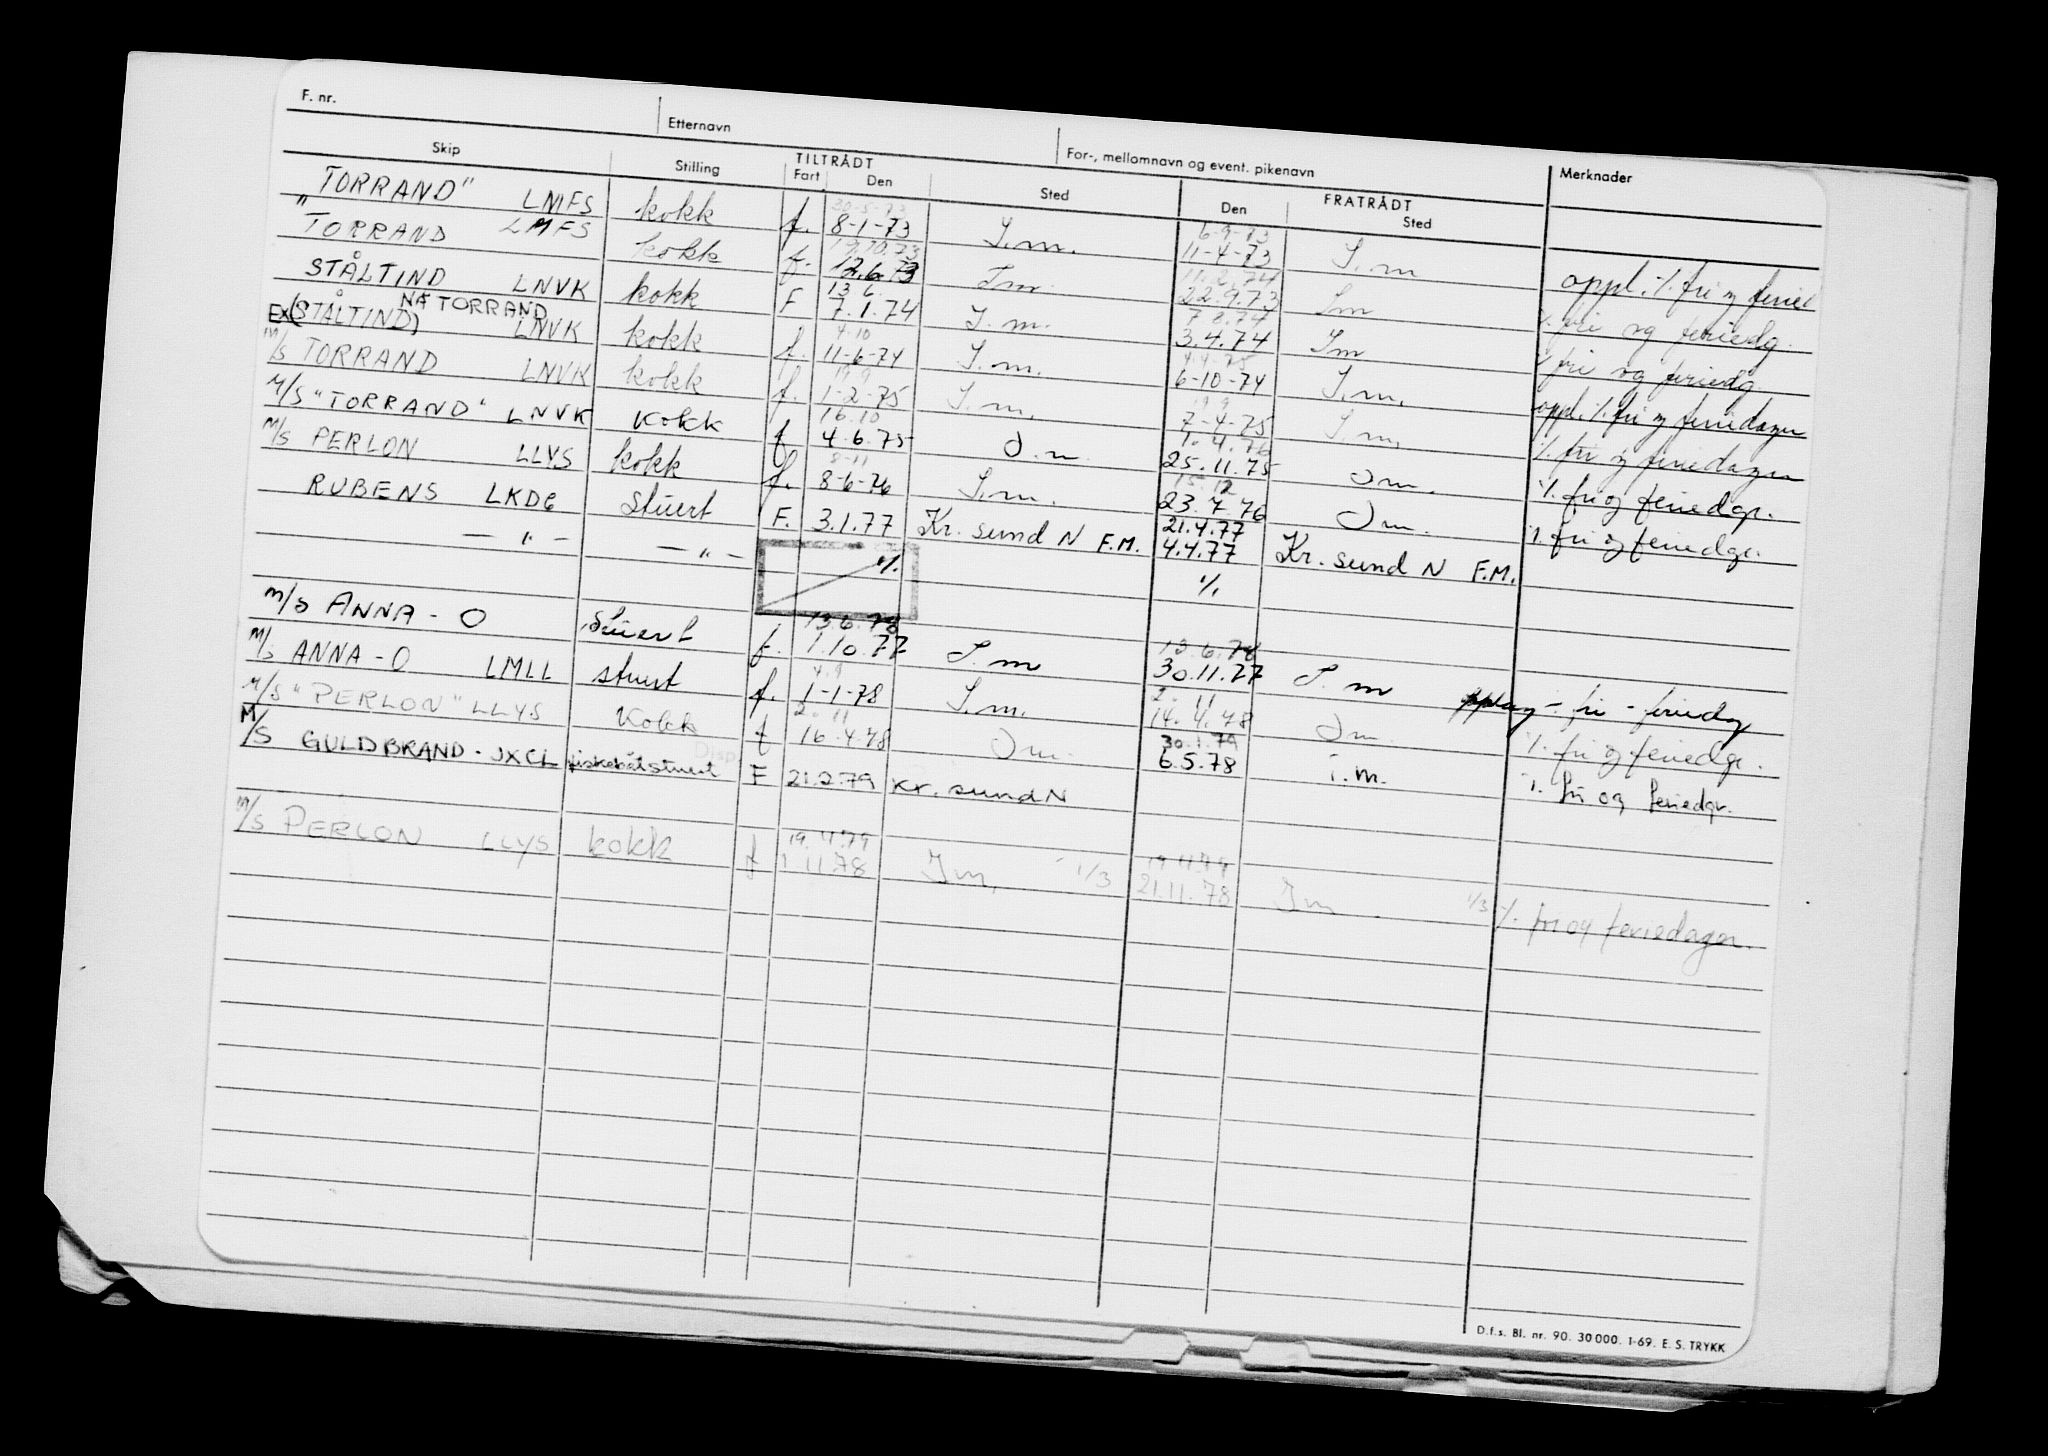 F. nr. Etternavn For-, mellomnavn og event. pikenavn Merknader
Skip Stilling TILTRÅDT FRATRÅDT
Fart Den Sted Den Sted
30-5-73 6-9-73
"TORRAND" LMFS kokk f. 8-1-73 I.m. 11-4-73 I.m oppl. ./. fri og
17.10.73 11.2.74
" TORRAND LMFS kokk f. 12.6.73 I.m. 22.9.73 I.m ./. fri og feriedg.
13.6 7.8.74
STÅLTIND LNVK kokk F 7.1.74 I.m. 3.4.74 I.m ./. fri og feriedg.
NÅ TORRAND 4-10 4.4-75
EX (STÅLTIND) LNVK kokk f. 11-6-74 I.m. 6-10-74 I.m. oppl. ./. fri og feriedager
19.9 19.9
M/S TORRAND LNVK kokk f. 1-2-75 I.m. 7-4-75 I.m. ./. fri og feriedager
16.10 1.4.76
M/S "TORRAND" LNVK Kokk f 4.6.75 I.m. 25.11.75 I.m. ./. fri og feriedgr.
8-11 15.12
M/S PERLON LLYS kokk f. 8-6-76 I.m. 23.7.76 I.m. ./. fri og feriedgr.
21.4.77
RUBENS LKDG stuert F. 3.1.77 Kr. sund N F.M. 4.4.77 Kr. sund N F.M.
— " — — " — ./. ./.
13.6.78 13.6.78
M/S ANNA - O stuert f. 1.10.77 I.m 30.11.77 I.m opplag ÷ fri - feriedg
4.9 2.11
M/S ANNA-O LMLL stuert f. 1-1-78 I.m. 14.4.78 I.m. ./. fri og feriedgr.
2.11 30.1.79
M/S "PERLON" LLYS Kokk f 16.4.78 I.m. 6.5.78 I.m. ./. fri og feriedgr.
Disp
M/S GULDBRAND - JXCL fiskebåtstuert F 21.2.79 Kr. sund N
19.4.79 19.4.79
M/S PERLON LLYS kokk f 1.11.78 I.m. 1/3 21.11.78 I.m 1/3 ./. fri og feriedager.
D.f.s. Bl. nr. 90. 30 000. 1-69. E. S. TRYKK